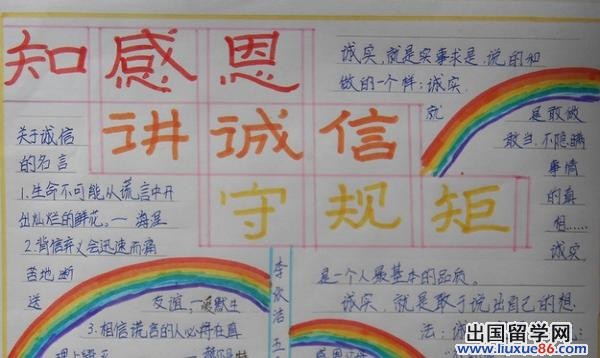 知感恩
讲诚信
守规矩
诚实,就是实事求是,说的和
做的一个样;诚实,
就是敢做
敢当,不隐瞒
事情
的真
相……
诚实
是一个人最基本的品质。
诚实,就是敢于说出自己的想
法;诚
关于诚信
的名言
1.生命不可能从谎言中开
出灿烂的鲜花。—海涅
2.背信弃义会迅速而痛
苦地断
送友谊,
3.相信谎言的人必将在真
理
李
五
出国留学网
www.liuxue86.com